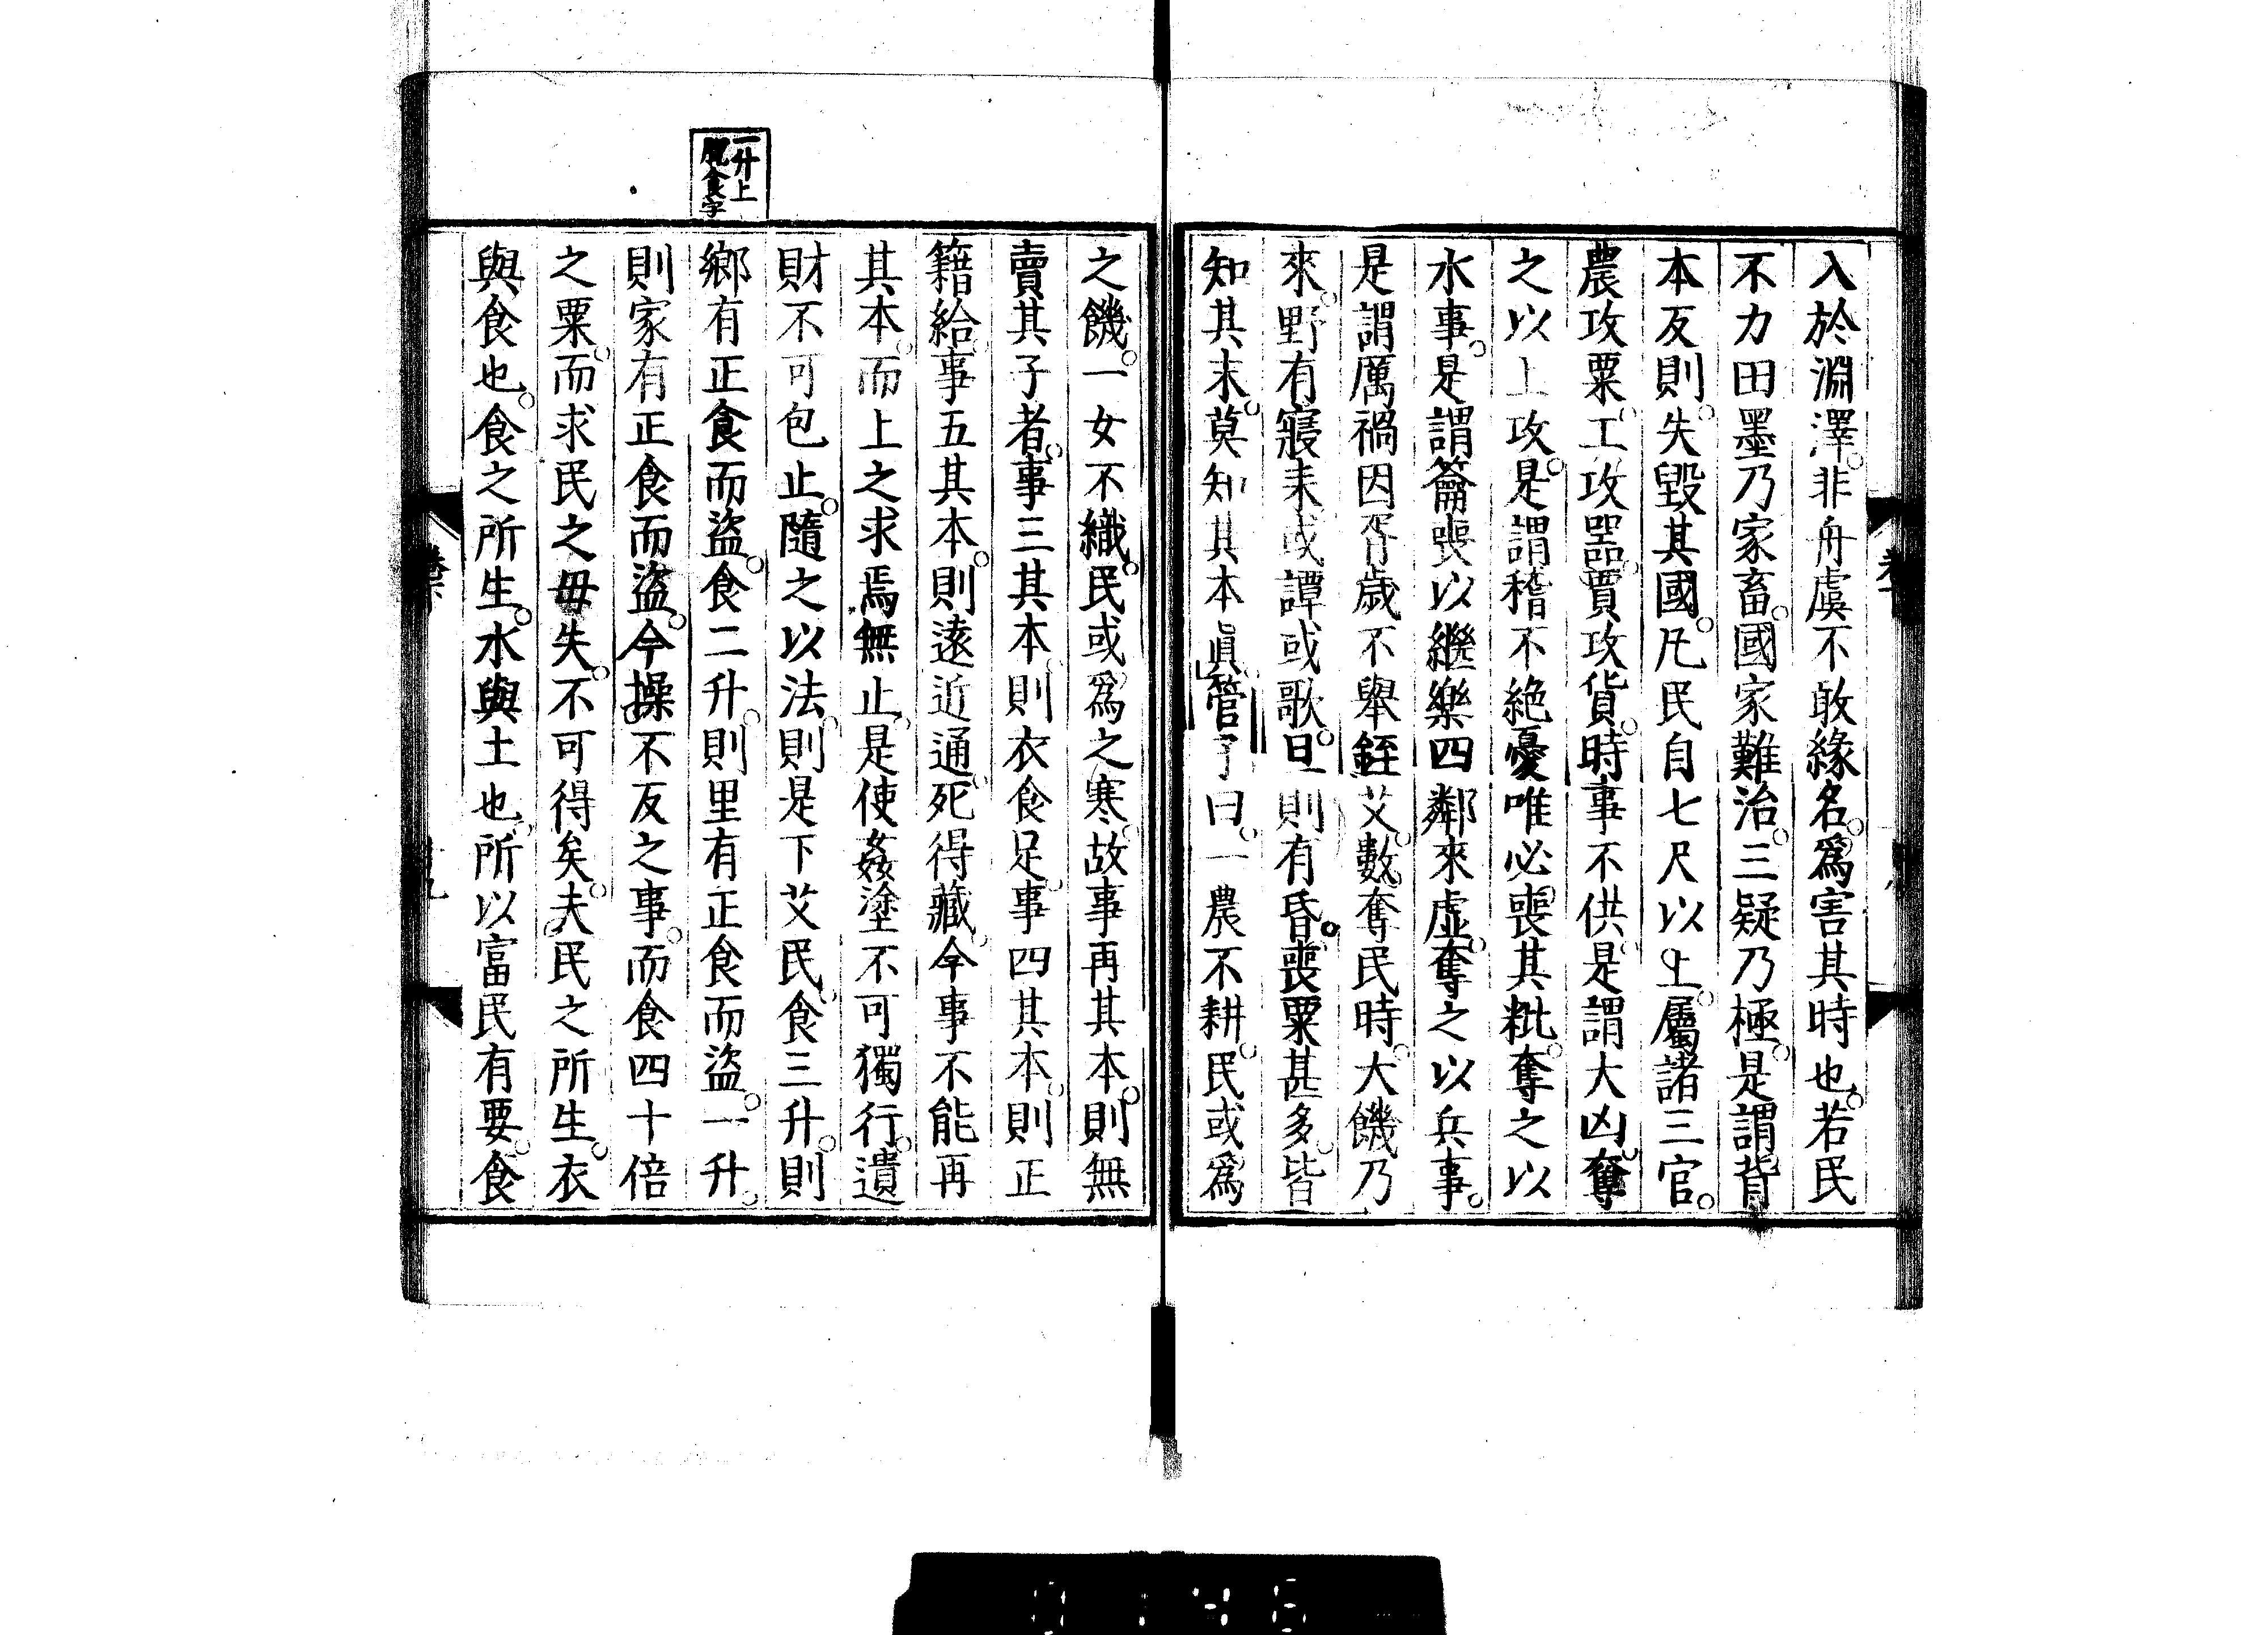 入於淵澤非舟虞不敢緣名爲害其時也若民
不力田墨乃家畜國家難治三疑乃極是謂背
本反則失毀其國凡民自七尺以上屬諸三官
農攻粟工攻器賈攻貨時事不供是謂大凶奪
之以土攻是謂稽不絶憂唯必喪其粃奪之以
水事是謂籥喪以繼樂四鄰來虛奪之以兵事
是謂厲禍因胥歲不舉銍艾數奪民時大饑乃
來野有寢耒或譚或歌旦則有昏喪粟甚多皆
知其末莫知其本眞管子曰一農不耕民或爲
之饑一女不織民或爲之寒故事再其本則無
賣其子者事三其本則衣食足事四其本則正
籍給事五其本則遠近通死得藏今事不能再
其本而上之求焉無止是使姦塗不可獨行遺
財不可包止隨之以法則是下艾民食三升則
鄉有正食而盜食二升則里有正食而盜一升
則家有正食而盜今操不反之事而食四十倍
之粟而求民之毋失不可得矣夫民之所生衣
與食也食之所生水與土也所以富民有要食
一升上
脫食字